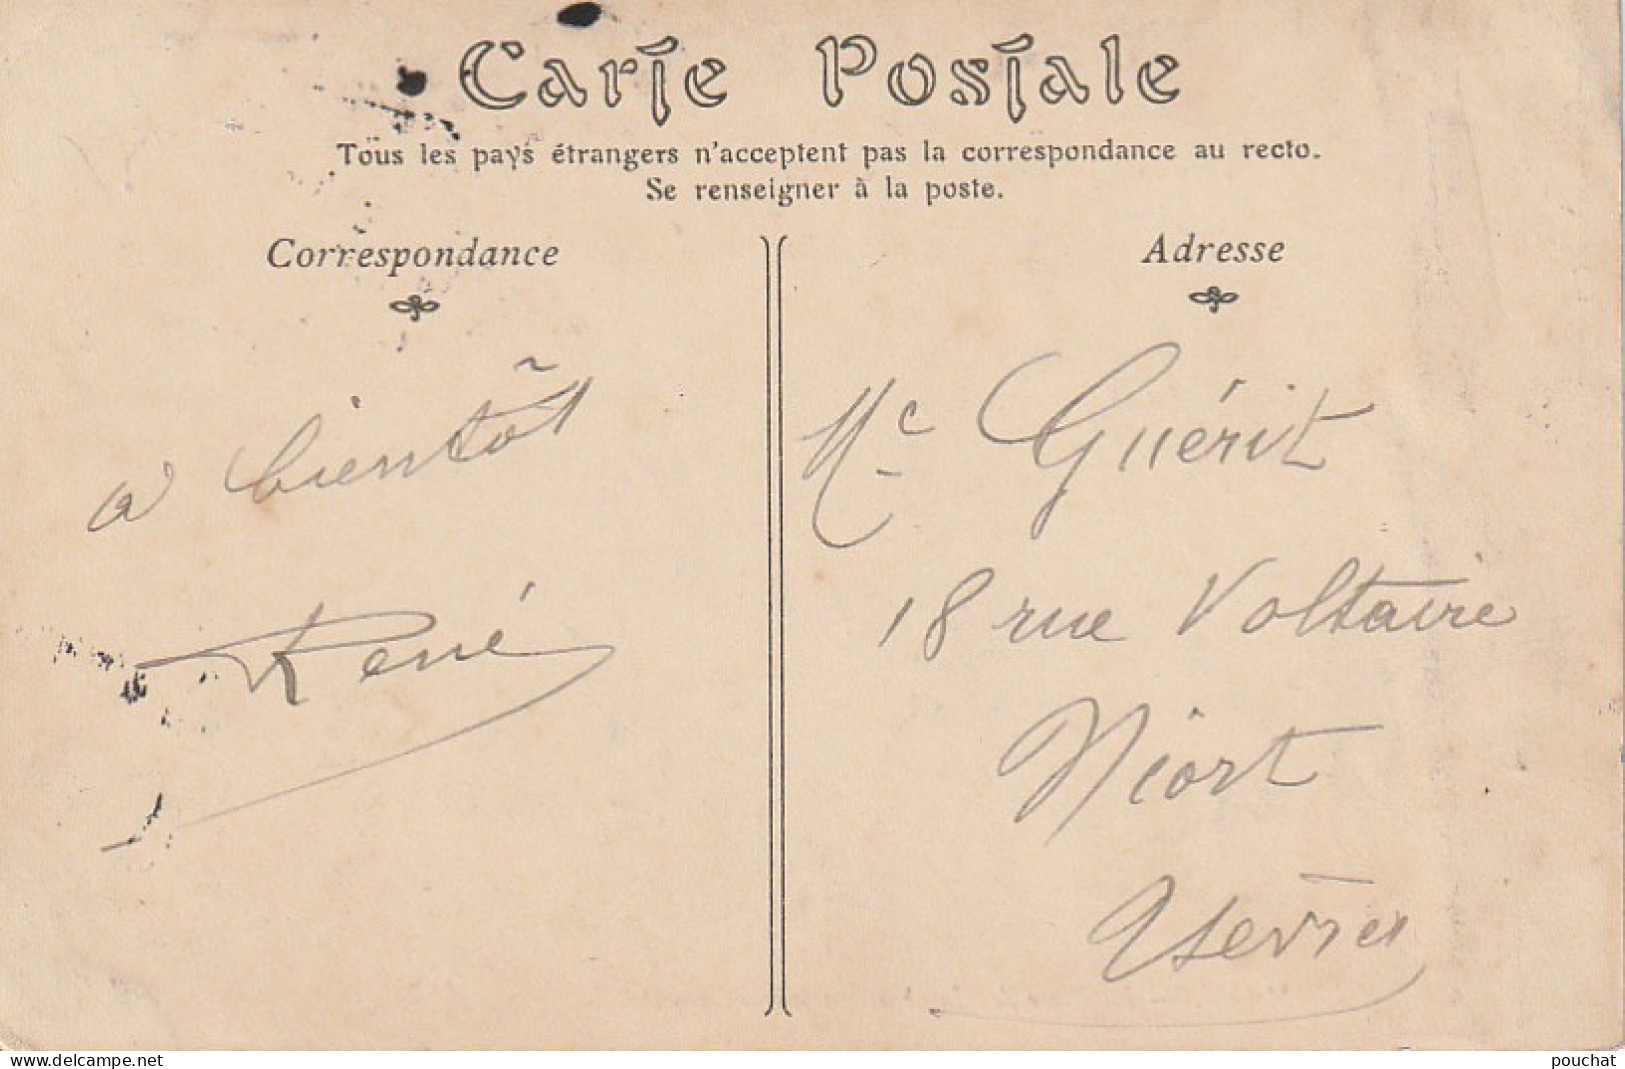 Carte Postale
Tous les pays étrangers n'acceptent pas la correspondance au recto.
Se renseigner à la poste.
Correspondance
à bientôt
René
Adresse
Mc Guérit
18 rue Voltaire
Niort
2 Sèvres
www.delcampe.net
pouchat